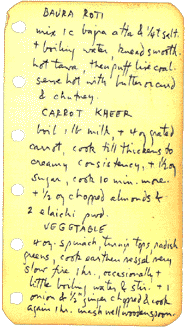 BAJRA ROTI
mix 1c bajra atta & ¼t salt.
+ boiling water knead smooth
hot tawa, then puff live coal.
serve hot with butter or curd
& chutney.
CARROT KHEER
boil 1 lt milk, + 4 oz grated
carrot, cook till thickens to
creamy consistency, + 1½ oz
sugar, cook 10 min. more.
+ ½ oz chopped almonds &
2 elaichi pwd.
VEGETABLE
4 oz. spinach, turnip tops, radish
greens, cook earthen vessel very
slow fire 1 hr., occasionally +
little boiling water & stir. + 1
onion & ½" ginger chopped & cook
again 1 hr. mash well wooden spoon.